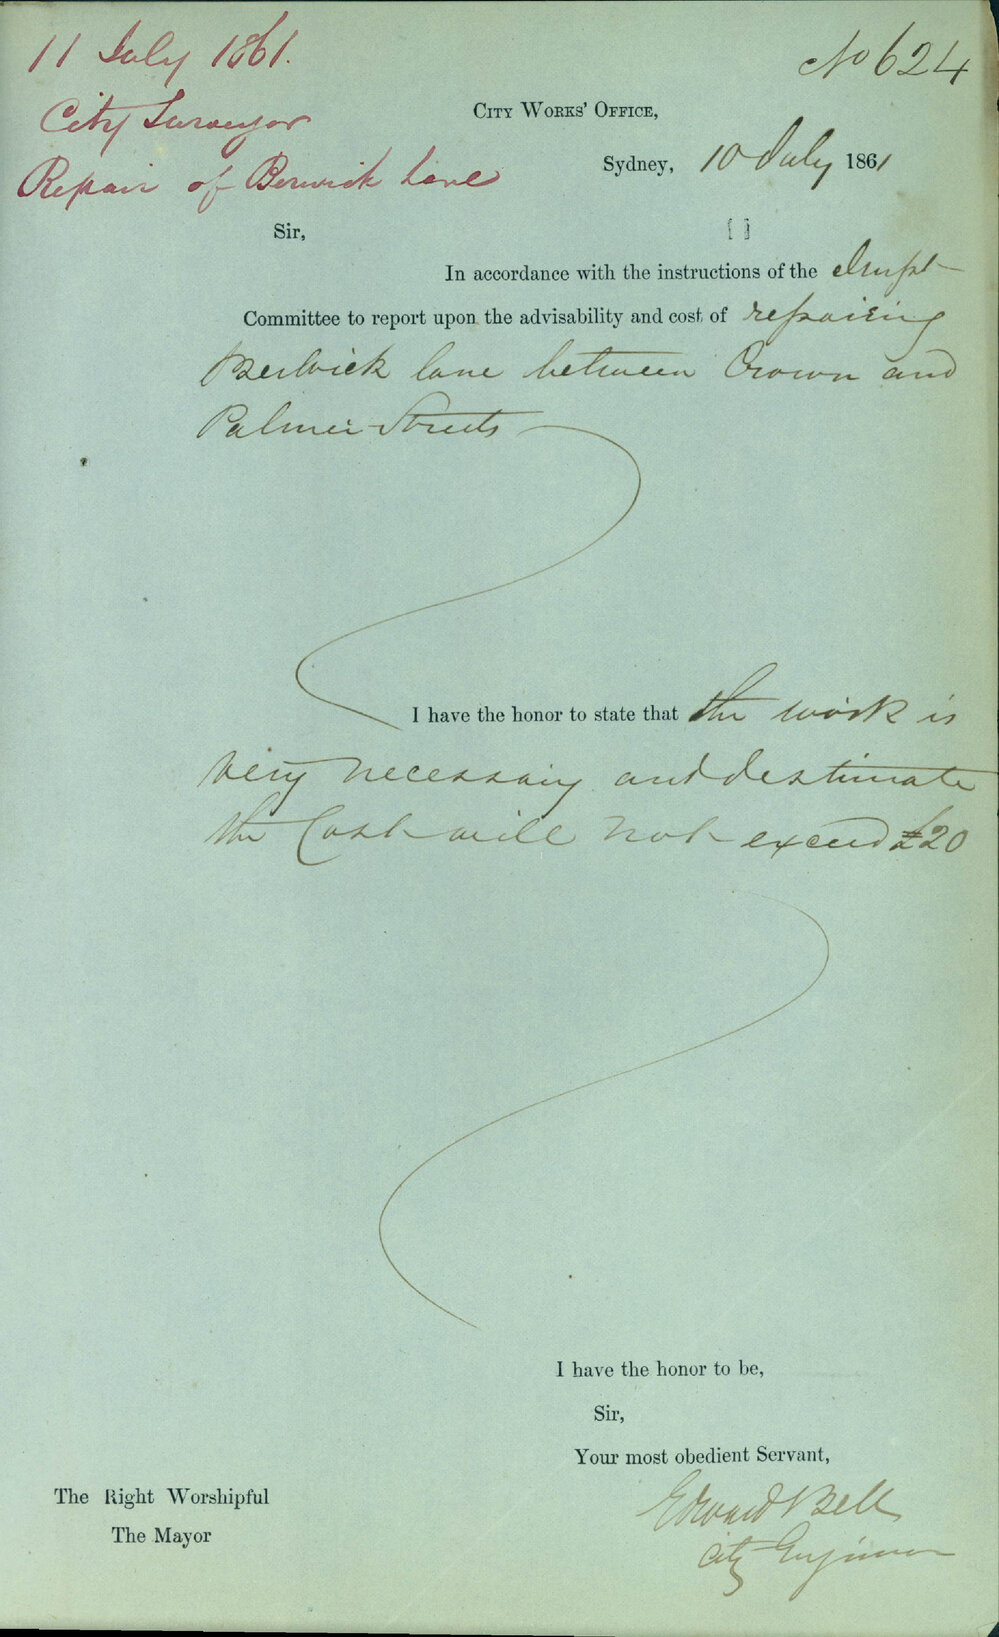 11 July 1861.
City Surveyor
Repair of Berwick Lane
No 624
City Works' Office,
Sydney, 10 July 1861
Sir,
In accordance with the instructions of the Impt
Committee to report upon the advisability and cost of repairing
Berwick lane between Crown and
Palmer Streets
I have the honor to state that the work is
very necessary and I estimate
the Cost will not exceed £20
I have the honor to be,
Sir,
Your most obedient Servant,
Edward Bell
City Engineer
The Right Worshipful
The Mayor